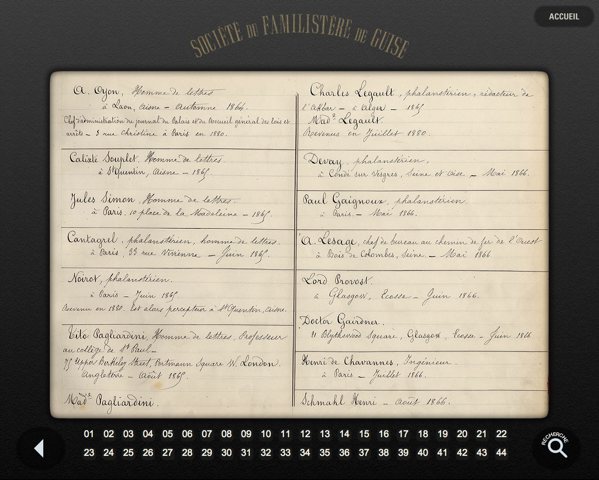 ACCUEIL
SOCIÉTÉ DU FAMILISTÈRE DE GUISE
A. Oyon, Homme de lettres
à Laon, Aisne – Automne 1864.
Chef d'administration du journal du Palais et du recueil général des lois et
arrêts – 5 rue Christine à Paris en 1880.
Calixte Souplet. Homme de lettres
à St Quentin, Aisne. – 1865.
Jules Simon, Homme de lettres
à Paris. 10 place de la Madeleine – 1865.
Cantagrel, phalanstérien, homme de lettres.
à Paris, 33 rue Vivienne – Juin 1865.
Noirot, phalanstérien.
à Paris – Juin 1865
Revenu en 1880. Est alors percepteur à St Quentin, Aisne.
Tito Pagliardini, Homme de lettres, Professeur
au collège de St Paul –
75 Upper Berkeley Street, Portmann Square W. London.
Angleterre – Août 1865.
Made Pagliardini.
Charles Legault, phalanstérien, rédacteur de
l'Akbar – à Alger – 1865
Made Legault.
Revenus en Juillet 1880.
Devay, phalanstérien,
à Condé sur Vesgres, Seine et Oise – Mai 1866.
Paul Gaignoux, phalanstérien.
à Paris – Mai 1866.
A. Lesage, chef de bureau au chemin de fer de l'Ouest
à Bois de Colombes, Seine – Mai 1866
Lord Provost.
à Glasgow, Ecosse – Juin 1866.
Doctor Gairdner.
Blythswood Square, Glasgow, Ecosse – Juin 1866
Henri de Chavannes, Ingénieur.
à Paris – Juillet 1866.
Schmahl Henri – Août 1866.
01 02 03 04 05 06 07 08 09 10 11 12 13 14 15 16 17 18 19 20 21 22
23 24 25 26 27 28 29 30 31 32 33 34 35 36 37 38 39 40 41 42 43 44
RECHERCHE